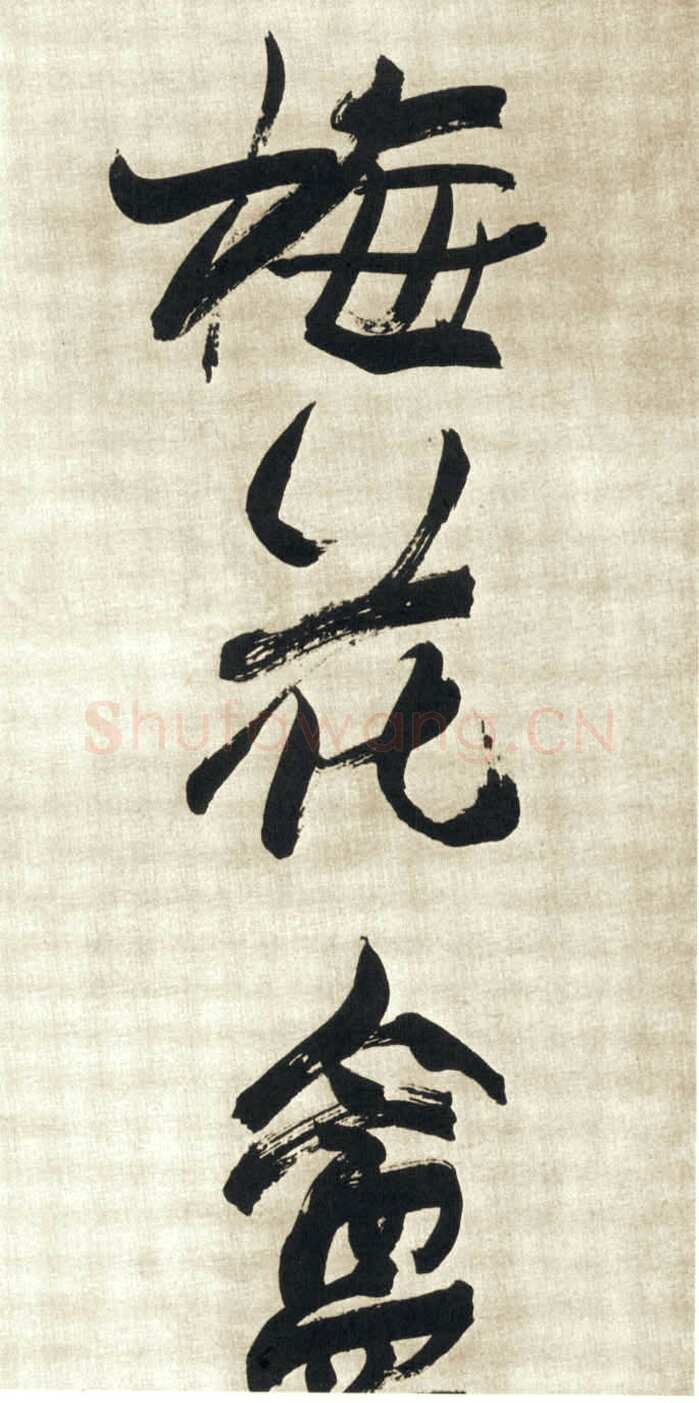 梅花盦
Shufawang.CN